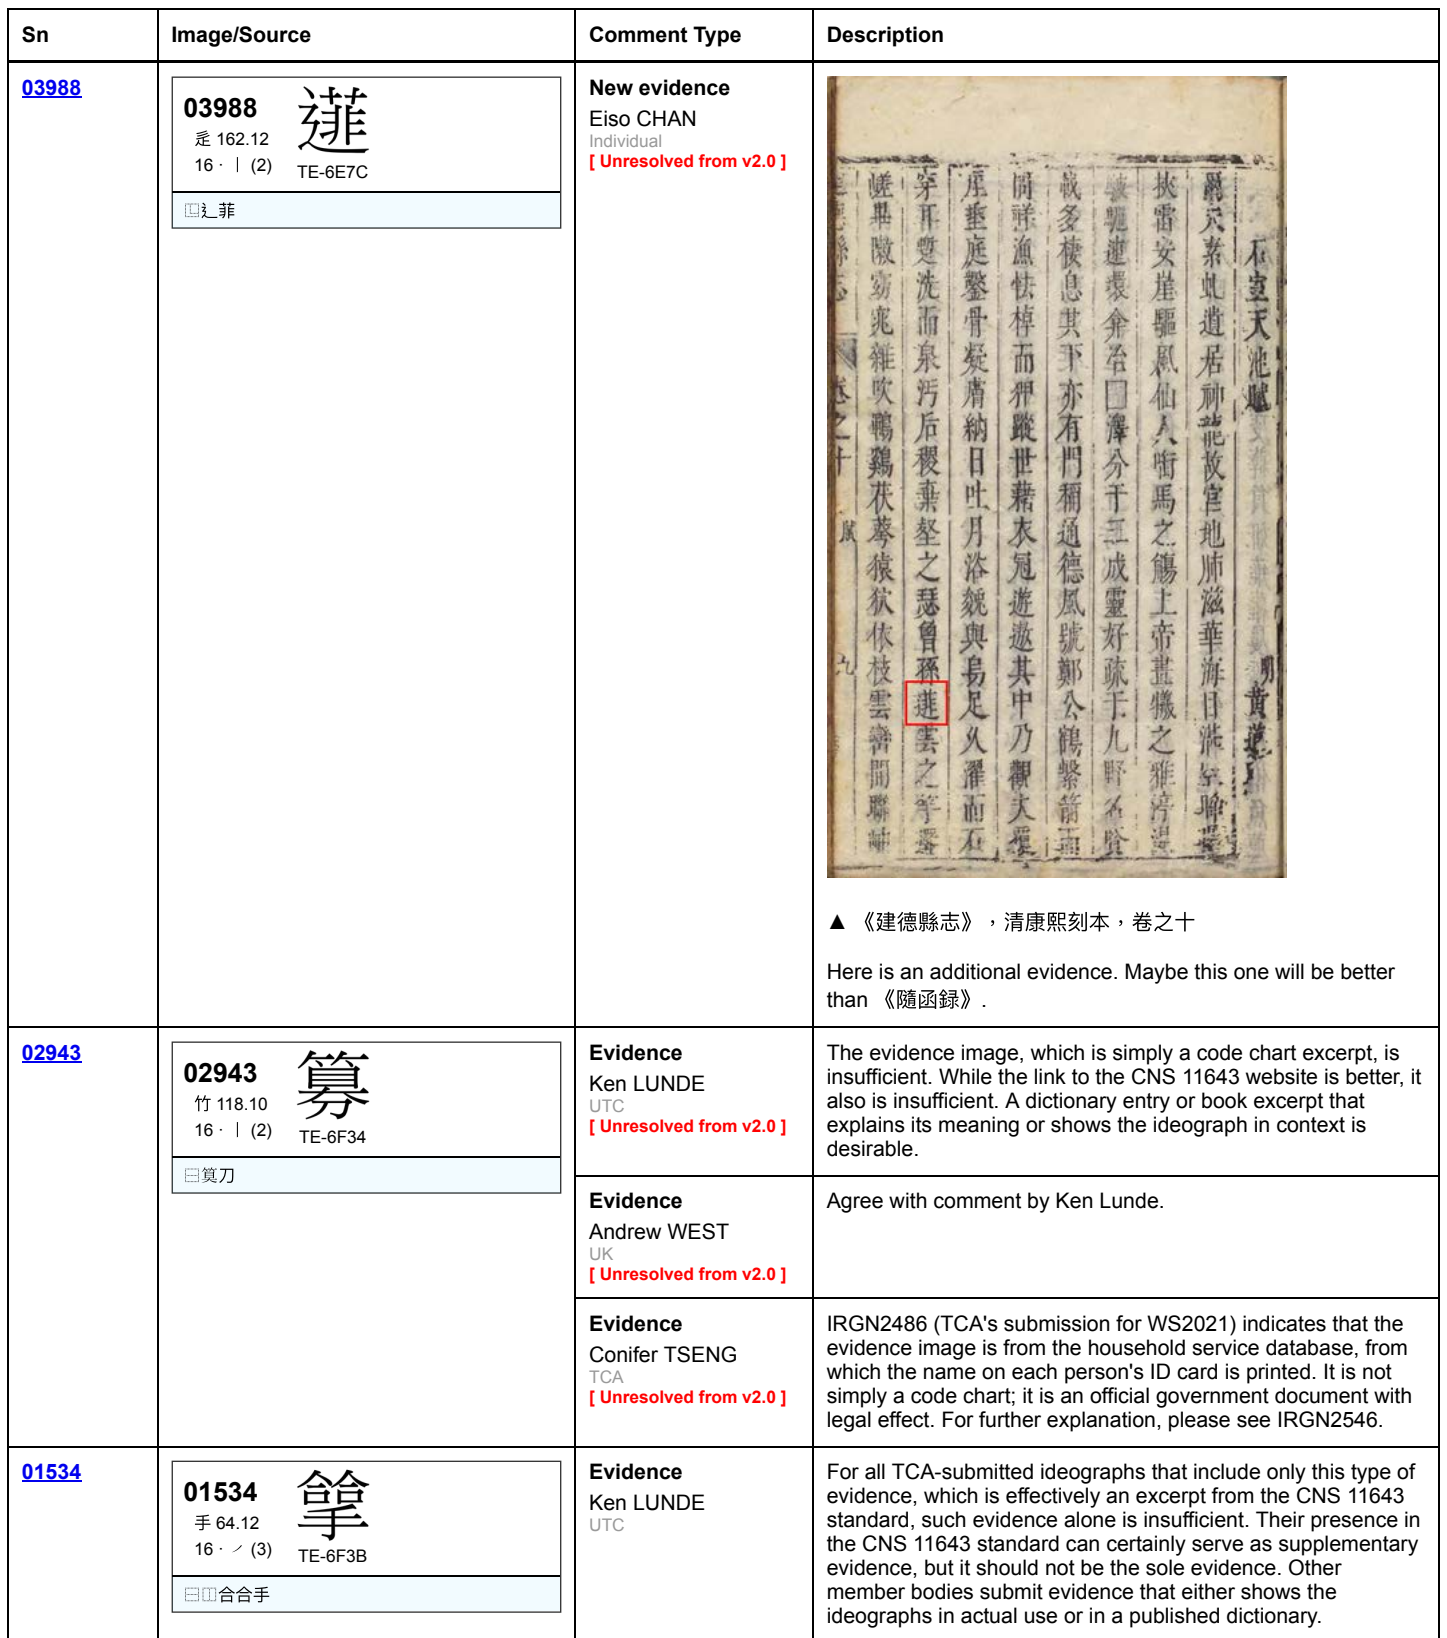 Sn Image/Source Comment Type Description
03988
03988
辵 162.12
16 · 丨 (2)
TE-6E7C
⿺辶菲
New evidence
Eiso CHAN
Individual
[ Unresolved from v2.0 ]
石室天池賦 明 黃
穴素虬遺居神龍故宮地肺滋華海日
挾雷安崖驅風仙人衙馬之觴上帝畫犧之雅渟
連環弇冶□澤分干三成靈好疏于九野名賢
載多棲息其下亦有門稱通德風號鄭公鶴繫箭
漁怯棹而狎蹤世藉衣冠遊遨其中乃觀夫
垂庭鑿骨凝膚納日吐月浴與易足久濯而石
穿耳甃洗而泉污后稷棄之瑟曾孫⿺辶菲雲之
嵯窈窕雜吹鶤鷄茯蔘猿狖依枝雲間聯岫
卷之十
賦
九
▲ 《建德縣志》，清康熙刻本，卷之十
Here is an additional evidence. Maybe this one will be better
than 《隨函録》.
02943
02943
竹 118.10
16 · 丨 (2)
TE-6F34
⿱筫刀
Evidence
Ken LUNDE
UTC
[ Unresolved from v2.0 ]
The evidence image, which is simply a code chart excerpt, is
insufficient. While the link to the CNS 11643 website is better, it
also is insufficient. A dictionary entry or book excerpt that
explains its meaning or shows the ideograph in context is
desirable.
Evidence
Andrew WEST
UK
[ Unresolved from v2.0 ]
Agree with comment by Ken Lunde.
Evidence
Conifer TSENG
TCA
[ Unresolved from v2.0 ]
IRGN2486 (TCA's submission for WS2021) indicates that the
evidence image is from the household service database, from
which the name on each person's ID card is printed. It is not
simply a code chart; it is an official government document with
legal effect. For further explanation, please see IRGN2546.
01534
01534
手 64.12
16 · ㇒ (3)
TE-6F3B
⿱⿰合合手
Evidence
Ken LUNDE
UTC
For all TCA-submitted ideographs that include only this type of
evidence, which is effectively an excerpt from the CNS 11643
standard, such evidence alone is insufficient. Their presence in
the CNS 11643 standard can certainly serve as supplementary
evidence, but it should not be the sole evidence. Other
member bodies submit evidence that either shows the
ideographs in actual use or in a published dictionary.